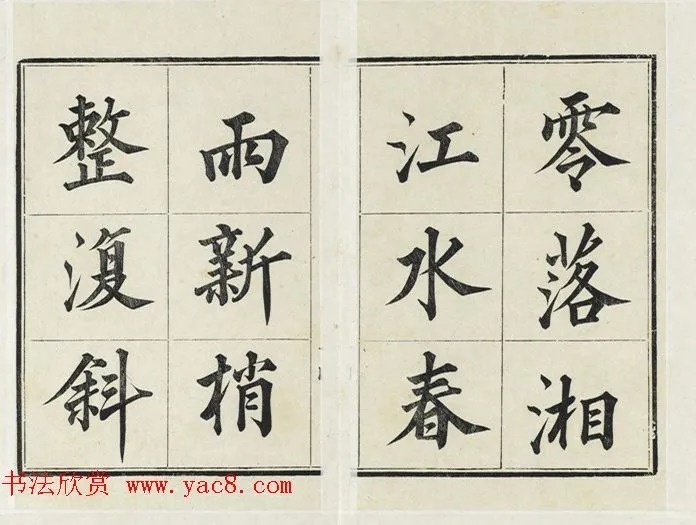 零落湘
江水春
雨新梢
整復斜
书法欣赏 www.yac8.com